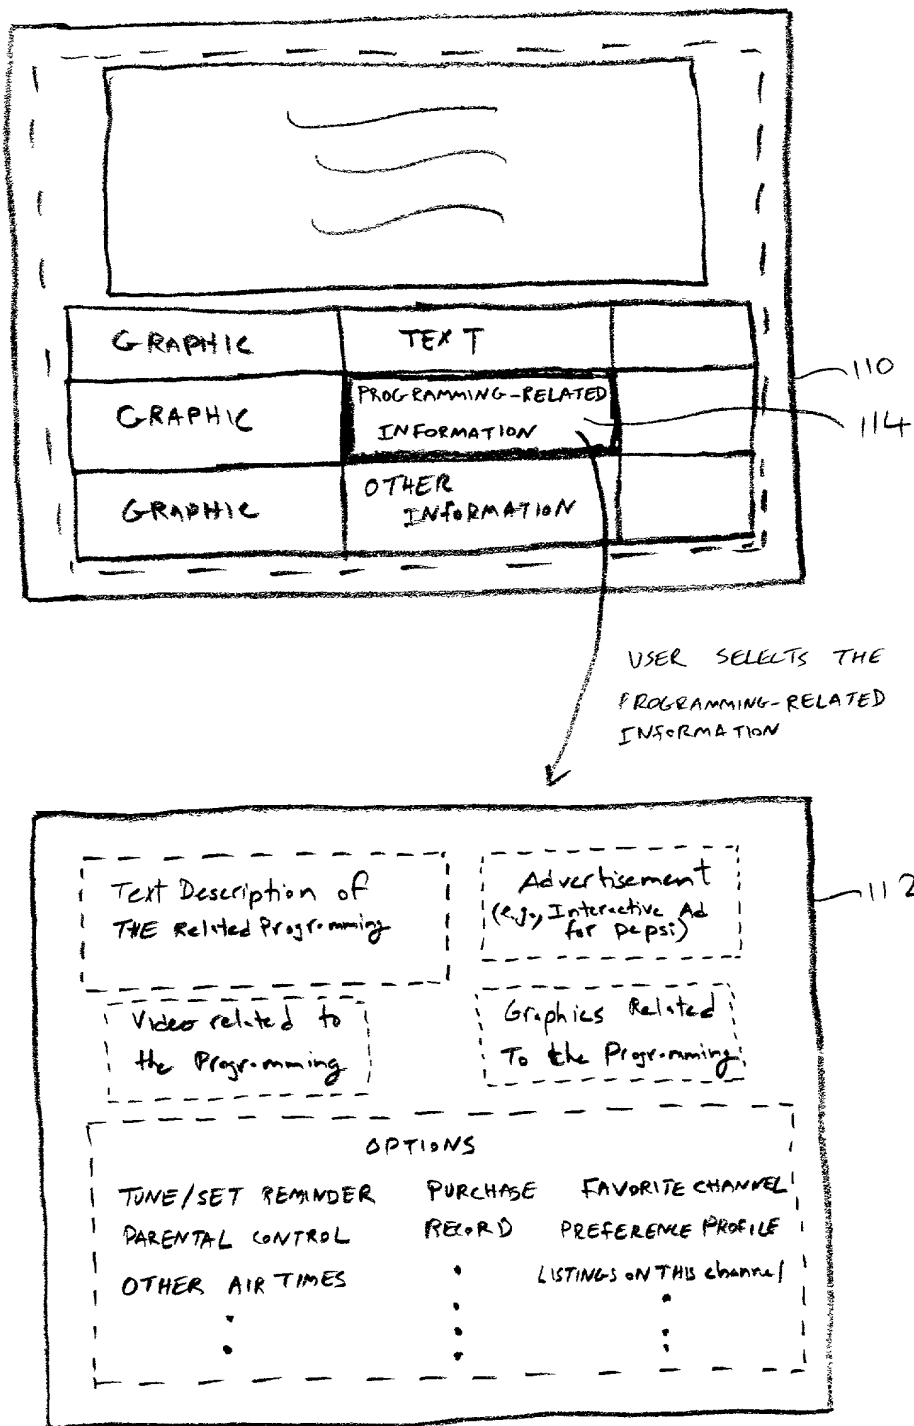 GRAPHIC TEXT
110
GRAPHIC PROGRAMMING-RELATED
INFORMATION
114
GRAPHIC OTHER
INFORMATION
USER SELECTS THE
PROGRAMMING-RELATED
INFORMATION
112
Text Description of
THE Related Programming
Advertisement
(e.g., Interactive Ad
for pepsi)
Video related to
the Programming
Graphics Related
To the Programming
OPTIONS
TUNE/SET REMINDER PURCHASE FAVORITE CHANNEL
PARENTAL CONTROL RECORD PREFERENCE PROFILE
OTHER AIR TIMES LISTINGS ON THIS channel